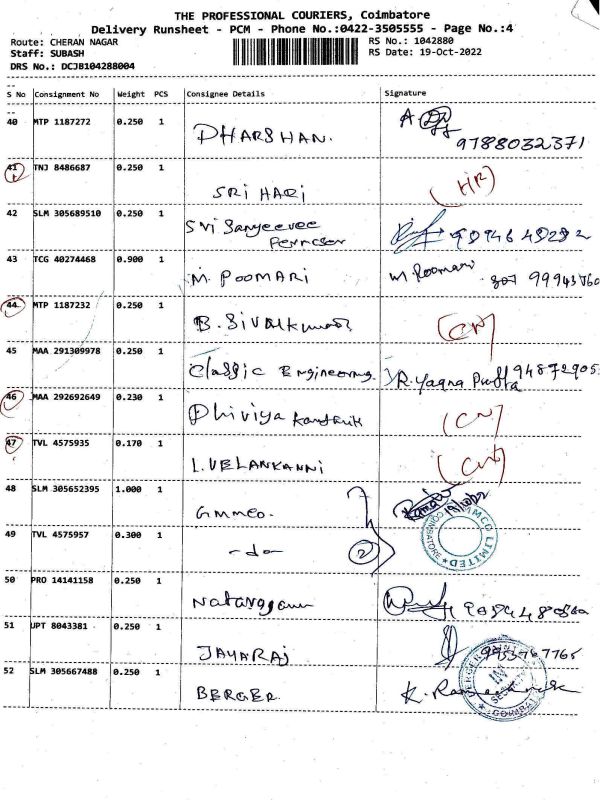 THE PROFESSIONAL COURIERS, Coimbatore
Delivery Runsheet - PCM - Phone No.:0422-3505555 - Page No.:4
Route: CHERAN NAGAR
RS No.: 1042880
Staff: SUBASH
RS Date: 19-Oct-2022
DRS No.: DCJB104288004
S No Consignment No Weight PCS Consignee Details Signature
40 MTP 1187272 0.250 1 DHARSHAN. 9788032371
41 TNJ 8486687 0.250 1 SRI HARI (HR)
42 SLM 305689510 0.250 1 Sri Sanjeevee
43 TCG 40274468 0.900 1 M. POOMARI M. Poomari
44 MTP 1187232 0.250 1 B. Sivakumar
45 MAA 291309978 0.250 1 Classic Engineering
46 MAA 292692649 0.230 1 Dhiviya Karthik
47 TVL 4575935 0.170 1 L. VELANKANNI
48 SLM 305652395 1.000 1 GMMCO.
49 TVL 4575957 0.300 1 -do- 2
MCO LIMITED COIMBATORE
50 PRO 14141158 0.250 1
51 UPT 8043381 0.250 1 JAYARAJ
52 SLM 305667488 0.250 1 BERGER